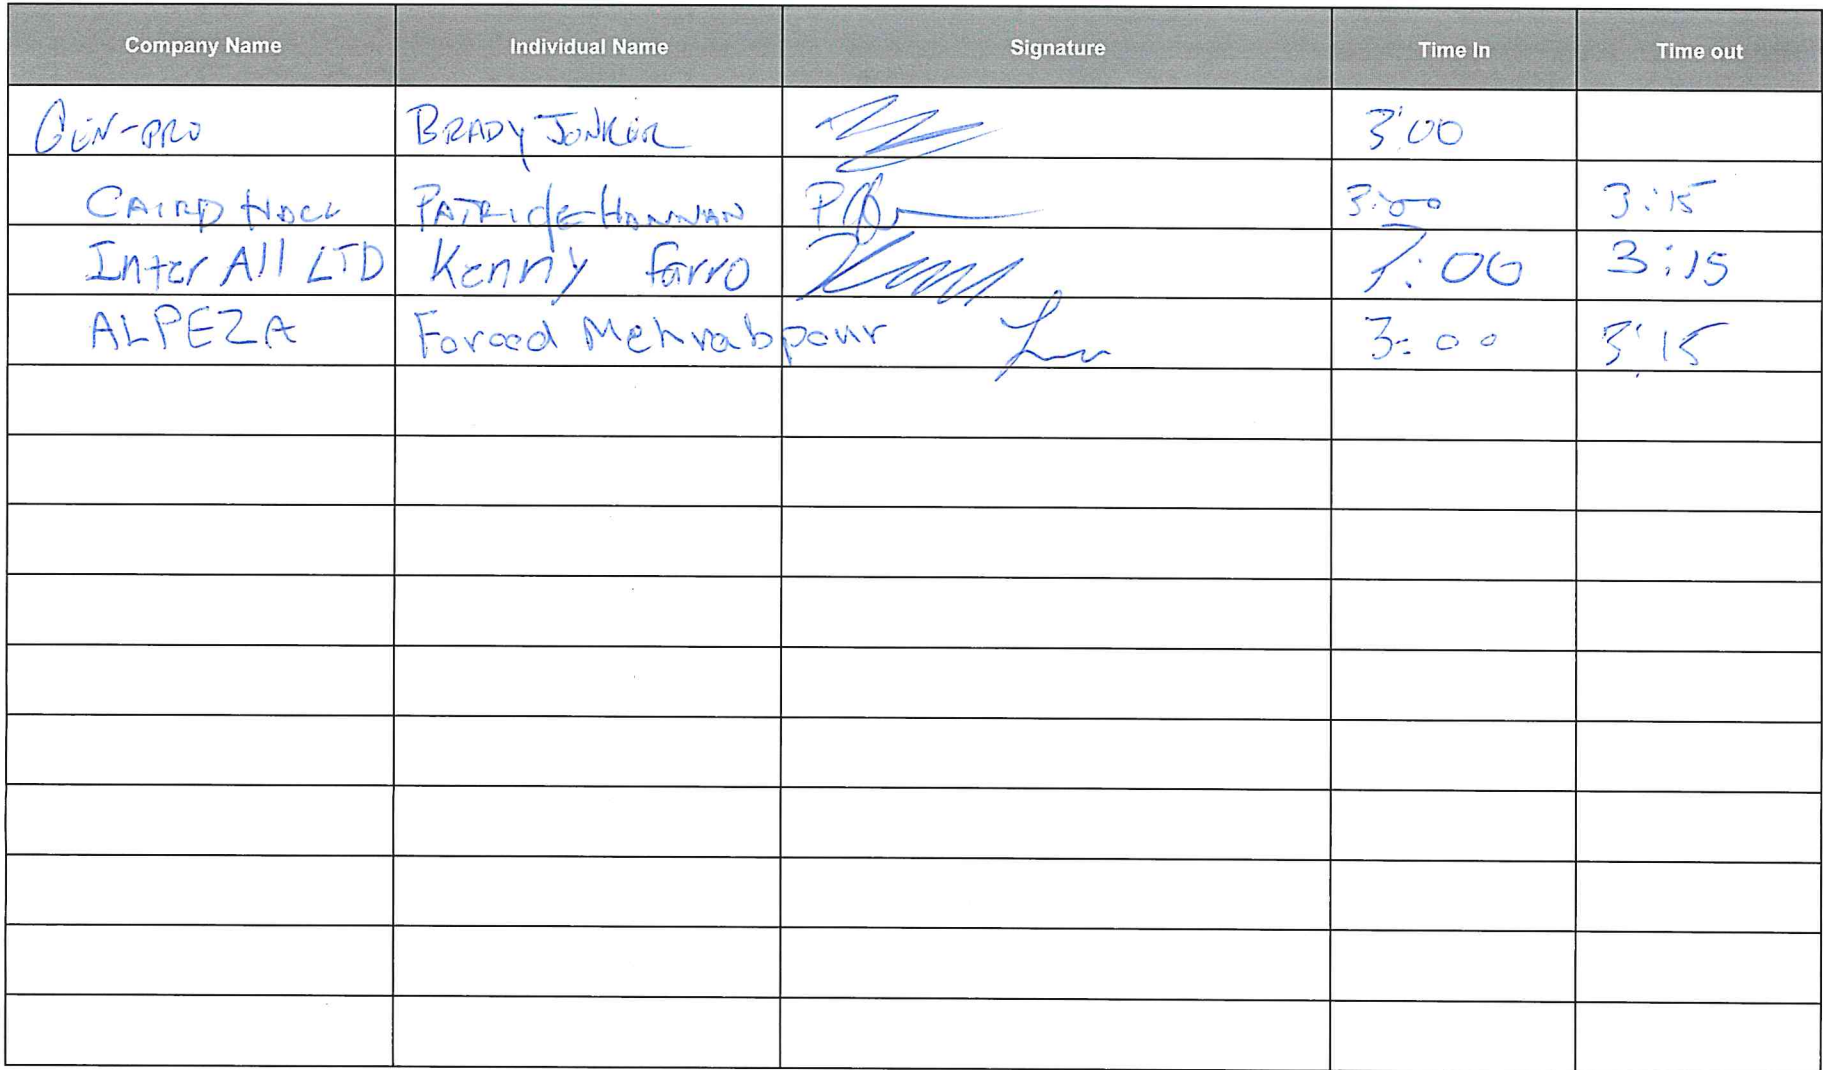 Company Name Individual Name Signature Time In Time out
GEN-PRO BRADY JONKER 3:00
CAIRD HALL PATRICK HANNAN 3:00 3:15
Inter All LTD Kenny farro 7:00 3:15
ALPEZA Forood Mehrabpour 3:00 3:15